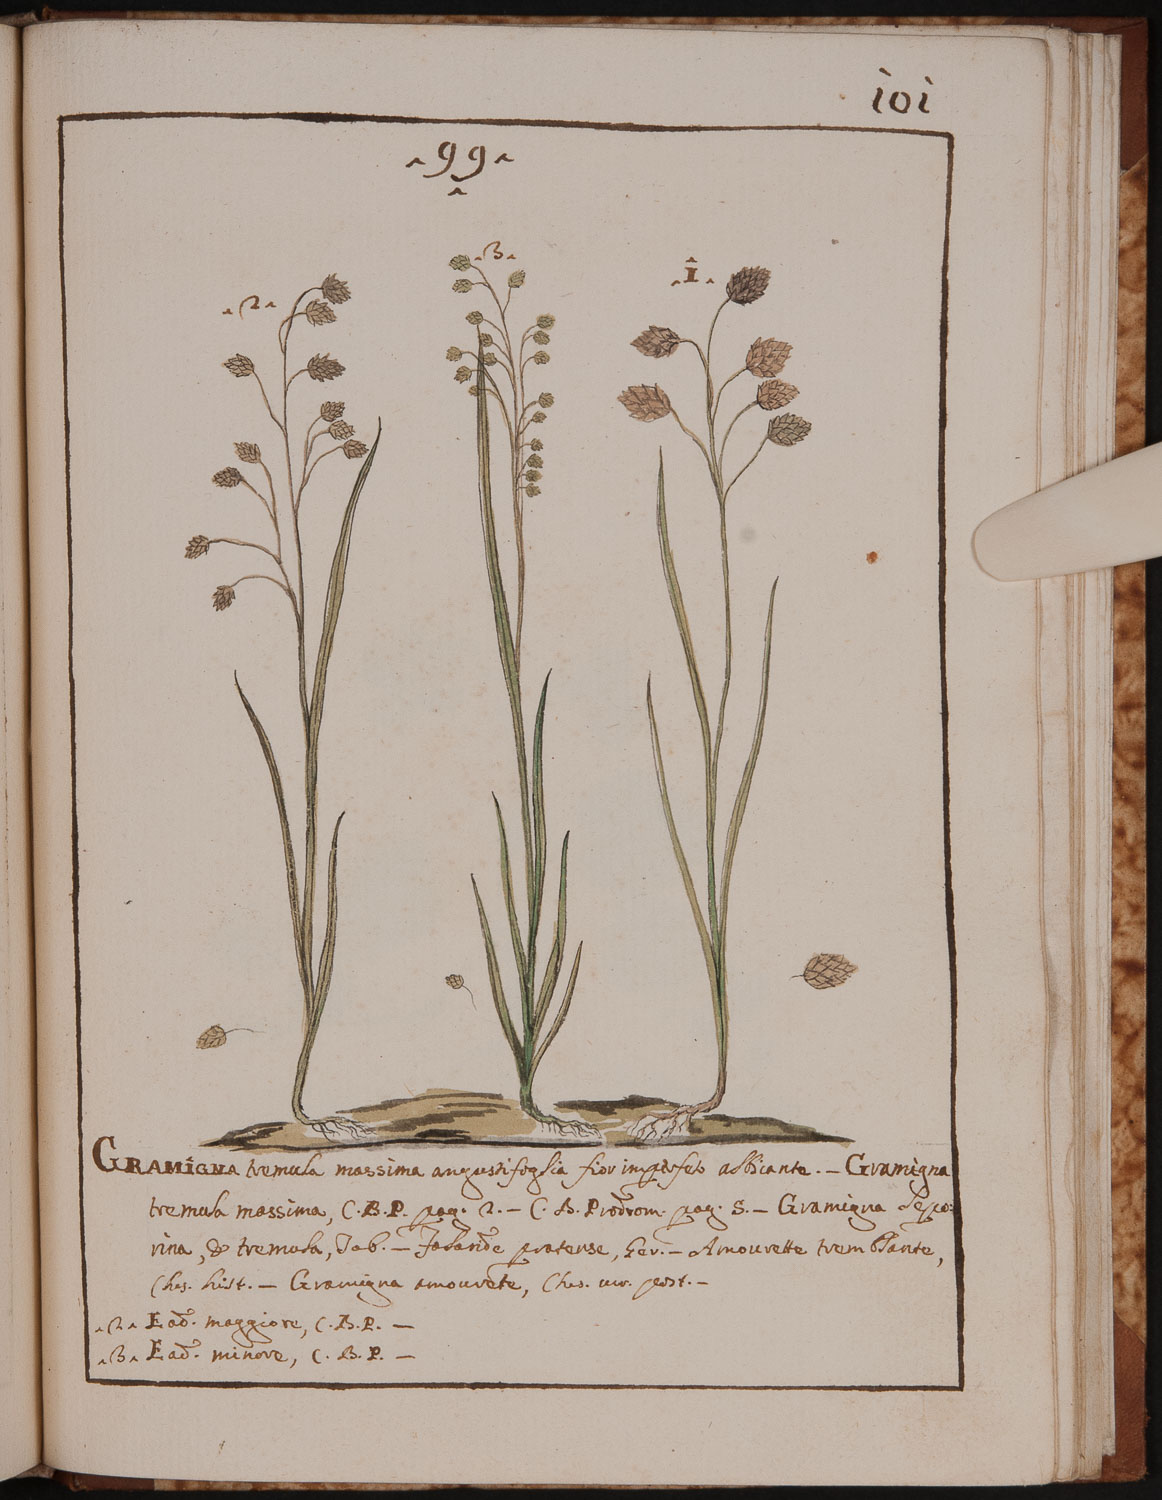 101
99
3
2
1
Gramigna tremula massima angustifoglia fior imperfeto albicante. — Gramigna
tremula massima, C.B.P. pag. 2. — C. B. Prodrom. pag. 5. — Gramigna Lepo-
rina, & tremula, Tab. — pratense, Ger. — Amourette tremblante,
Chas. hist. — Gramigna amourete, Chas. post. —
2 Ead. maggiore, C.B.P. —
3 Ead. minore, C.B.P. —